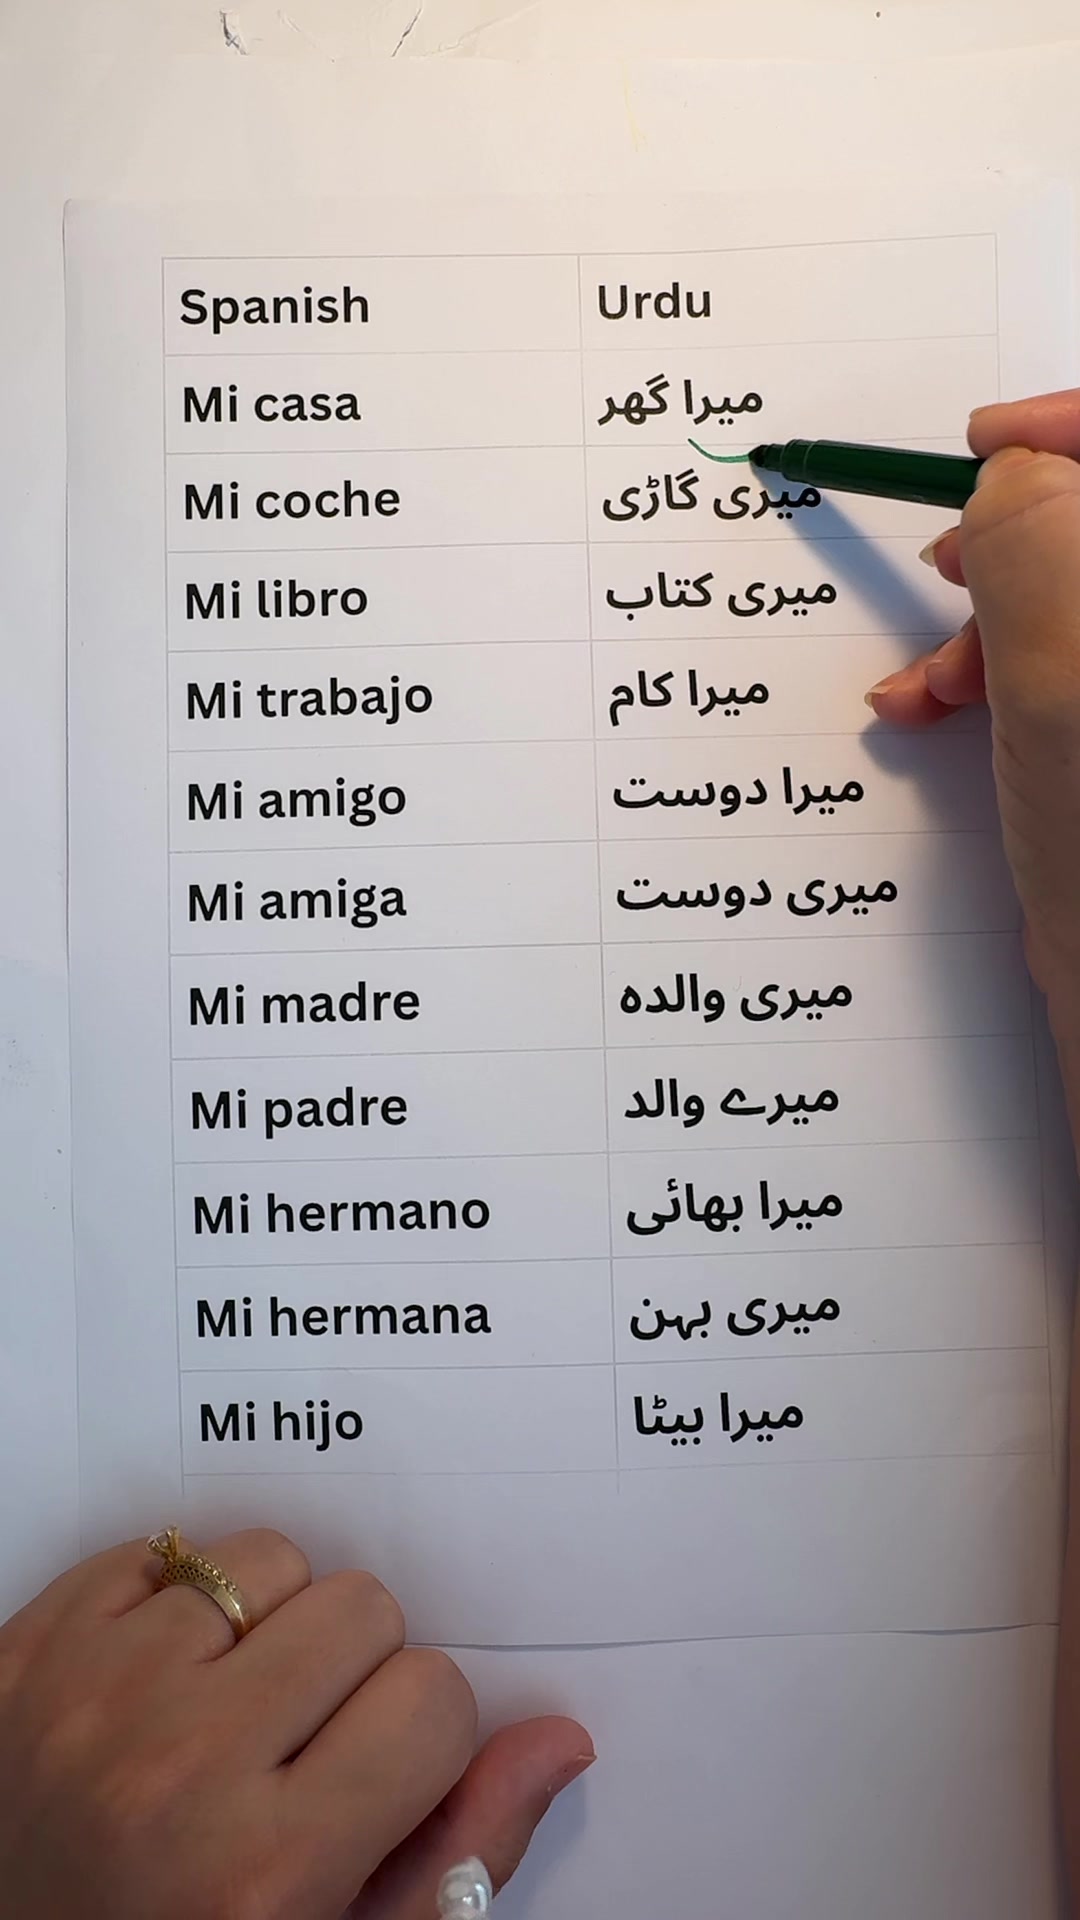 Spanish Urdu
Mi casa میرا گھر
Mi coche میری گاڑی
Mi libro میری کتاب
Mi trabajo میرا کام
Mi amigo میرا دوست
Mi amiga میری دوست
Mi madre میری والدہ
Mi padre میرے والد
Mi hermano میرا بھائی
Mi hermana میری بہن
Mi hijo میرا بیٹا